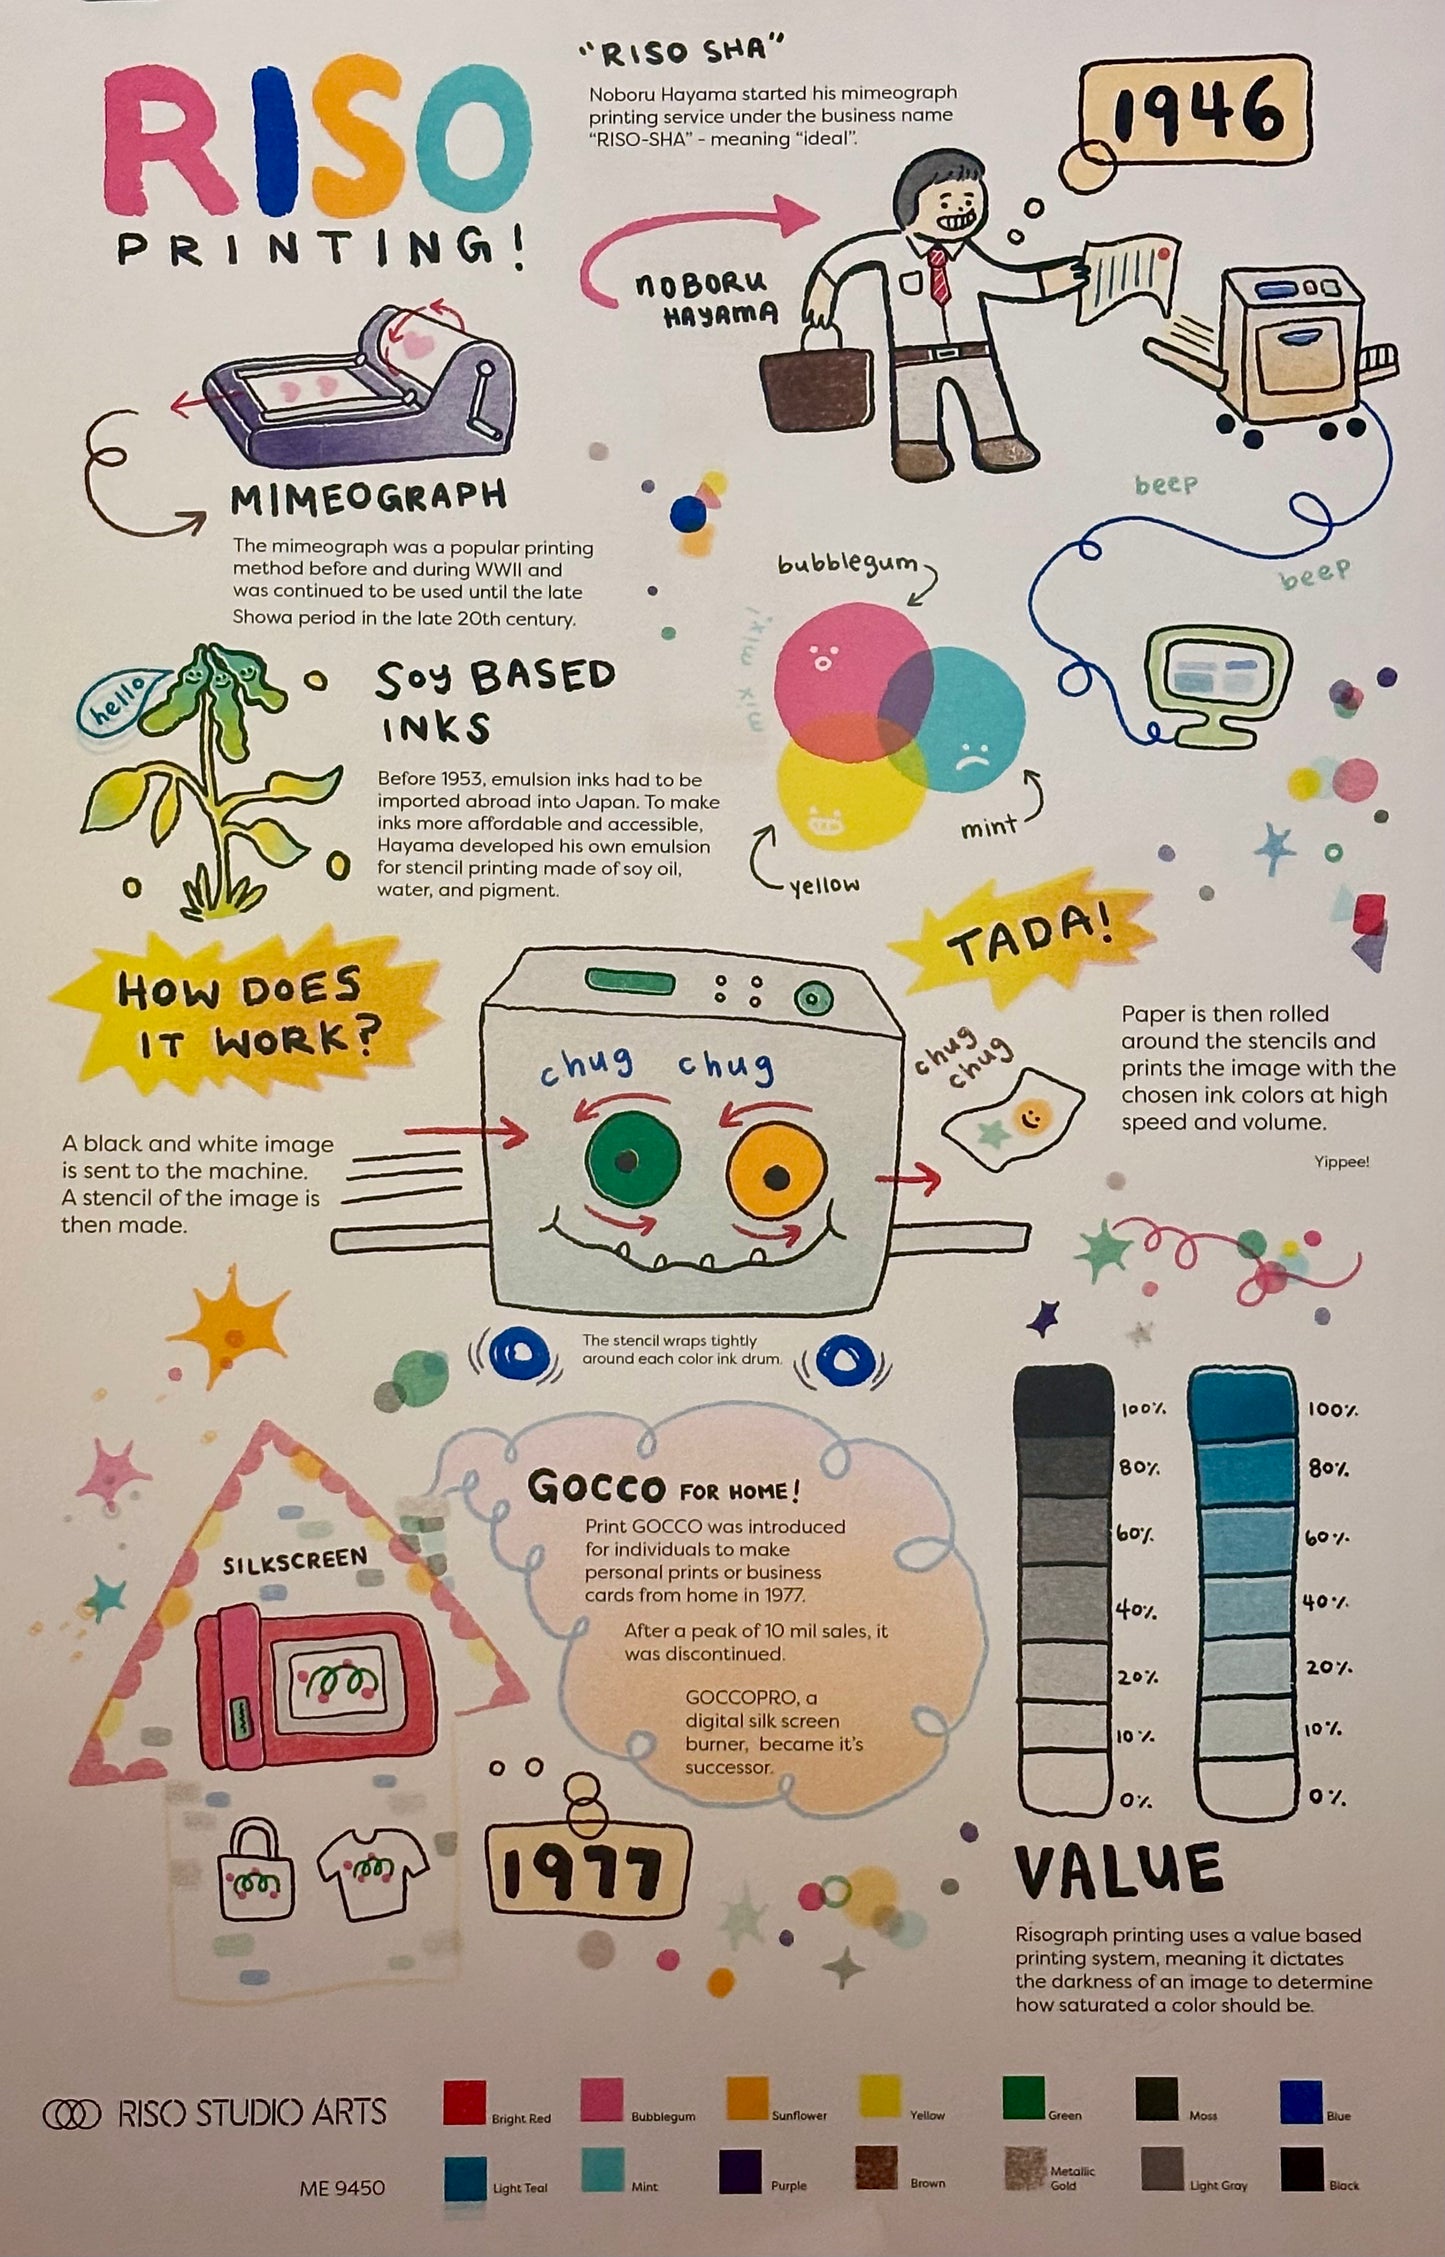 RISO
PRINTING!
"RISO SHA"
Noboru Hayama started his mimeograph
printing service under the business name
"RISO-SHA" - meaning "ideal".
1946
NOBORU
HAYAMA
MIMEOGRAPH
The mimeograph was a popular printing
method before and during WWII and
was continued to be used until the late
Showa period in the late 20th century.
beep
beep
hello
SOY BASED
INKS
Before 1953, emulsion inks had to be
imported abroad into Japan. To make
inks more affordable and accessible,
Hayama developed his own emulsion
for stencil printing made of soy oil,
water, and pigment.
bubblegum
mix mix!
mint
yellow
HOW DOES
IT WORK?
A black and white image
is sent to the machine.
A stencil of the image is
then made.
chug chug
The stencil wraps tightly
around each color ink drum.
TADA!
chug
chug
Paper is then rolled
around the stencils and
prints the image with the
chosen ink colors at high
speed and volume.
Yippee!
SILKSCREEN
GOCCO FOR HOME!
Print GOCCO was introduced
for individuals to make
personal prints or business
cards from home in 1977.
After a peak of 10 mil sales, it
was discontinued.
GOCCOPRO, a
digital silk screen
burner, became it's
successor.
1977
100%
80%
60%
40%
20%
10%
0%
100%
80%
60%
40%
20%
10%
0%
VALUE
Risograph printing uses a value based
printing system, meaning it dictates
the darkness of an image to determine
how saturated a color should be.
RISO STUDIO ARTS
ME 9450
Bright Red
Bubblegum
Sunflower
Yellow
Green
Moss
Blue
Light Teal
Mint
Purple
Brown
Metallic
Gold
Light Gray
Black